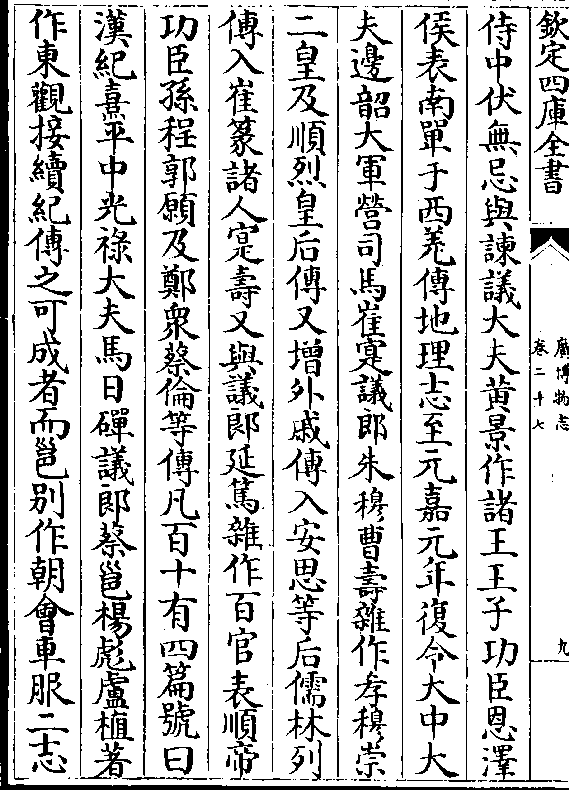 欽定四庫全書
廣博物志
卷二十七
九
侍中伏無忌與諫議大夫黄景作諸王王子功臣恩澤
侯表南單于西羌傳地理志至元嘉元年復令大中大
夫邊韶大軍營司馬崔寔議郎朱穆曹壽雜作孝穆崇
二皇及順烈皇后傳又增外戚傳入安思等后儒林列
傳入崔篆諸人寔壽又與議郎延篤雜作百官表順帝
功臣孫程郭願及鄭衆蔡倫等傳凡百十有四篇號曰
漢紀熹平中光禄大夫馬日磾議郎蔡邕楊彪盧植著
作東觀接續紀傳之可成者而邕别作朝會車服二志